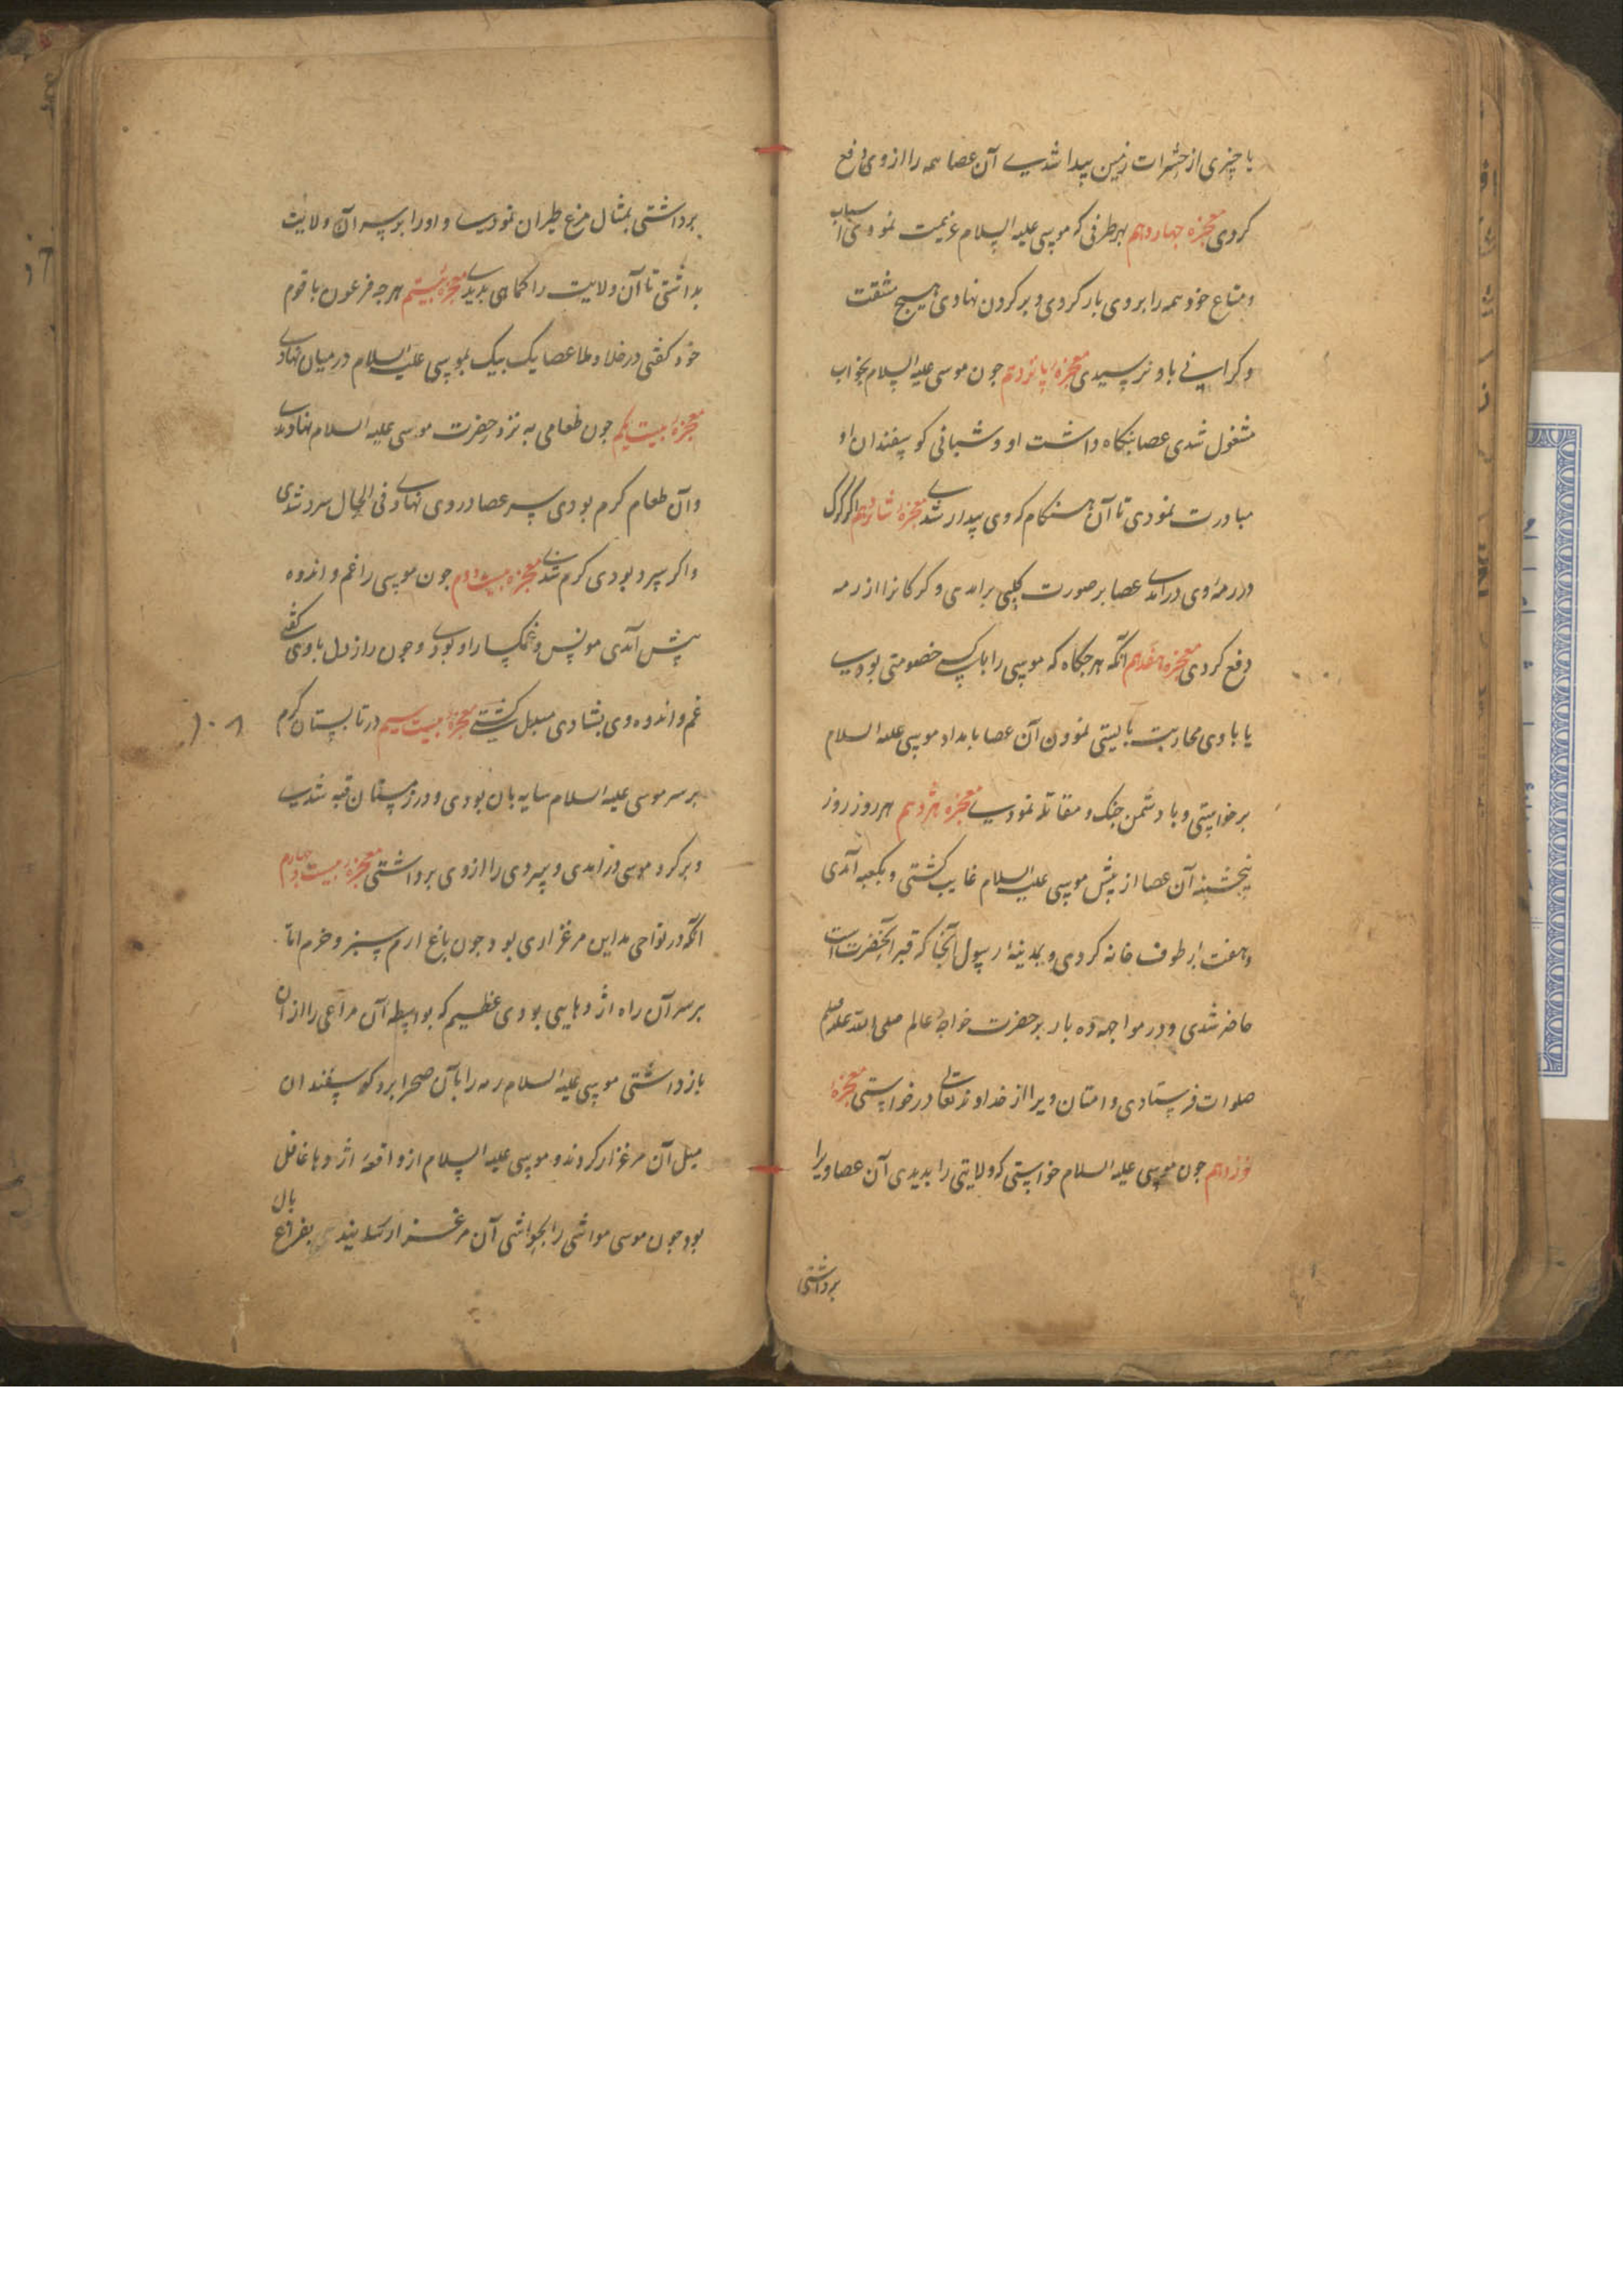 یا چیزی از حشرات زمین پیدا شدی آن عصا همه را از وی دفع
کردی معجزه چهاردهم بهر طرفی که موسی علیه السلام عزیمت نمودی اسباب
و متاع خود همه را بروی بار کردی و بر کردن نهادی هیچ مشقت
و کرانی باو نرسیدی معجزهٔ پانزدهم جون موسی علیه السلام بخواب
مشغول شدی عصا نکاه داشت او و شبانی کوسفندان او
مبادرت نمودی تا آن هنکام که وی بیدار شدی معجزهٔ شانزدهم اکر کرک
در رمهٔ وی درآمدی عصا بر صورت کلبی برآمدی و کرکانرا از رمه
دفع کردی معجزه هفدهم آنکه هر جکاه که موسی را با کسی خصومتی بودی
یا باوی محاربت بایستی نمودن آن عصا بامداد موسی علیه السلام
برخواستی و با دشمن جنک و مقاتله نمودی معجزه هژدهم هر روز روز
پنجشنبه آن عصا از پیش موسی علیه السلام غایب کشتی و بکعبه آمدی
و هفت بار طوف خانه کردی و بمدینهٔ رسول آنجا که قبر آنحضرت است
حاضر شدی و در مواجهه ده بار بر حضرت خواجهٔ عالم صلی الله علیه وسلم
صلوات فرستادی و امتان ویرا از خداوند تعالی درخواستی معجزهٔ
نوزدهم جون موسی علیه السلام خواستی که ولایتی را بدیدی آن عصا ویرا
برداشتی
برداشتی بمثال مرغ طیران نمودی و او را بر سر آن ولایت
بداشتی تا آن ولایت را کماهی بدیدی معجزهٔ بیستم هرجه فرعون با قوم
خود کفتی در خلا و ملا عصا یک بیک بموسی علیه السلام در میان نهادی
معجزهٔ بیست یکم جون طعامی به نزد حضرت موسی علیه السلام نهادندی
و آن طعام کرم بودی سر عصا در وی نهادی فی الحال سرد شدی
و اکر سرد بودی کرم شدی معجزه بیست دوم جون موسی را غم و اندوه
پیش آمدی مونس و غمکسار او بودی و جون راز دل باوی کفتی
غم و اندوه وی بشادی مبدل کشتی معجزهٔ بیست سیم در تابستان کرم
بر سر موسی علیه السلام سایه بان بودی و در زمستان قبه شدی
و بر کرد موسی درآمدی و سردی را از وی برداشتی معجزهٔ بیست و چهارم
آنکه در نواحی مداین مرغزاری بود جون باغ ارم سبز و خرم اما
بر سر آن راه اژدهایی بودی عظیم که بواسطه آن مراعی را از آن
باز داشتی موسی علیه السلام رمه را بآن صحرا برد کوسفندان
میل آن مرغزار کردند و موسی علیه السلام از واقعهٔ اژدها غافل
بود جون موسی مواشی را بحواشی آن مرغزار بفراغ بال
۱۰۸